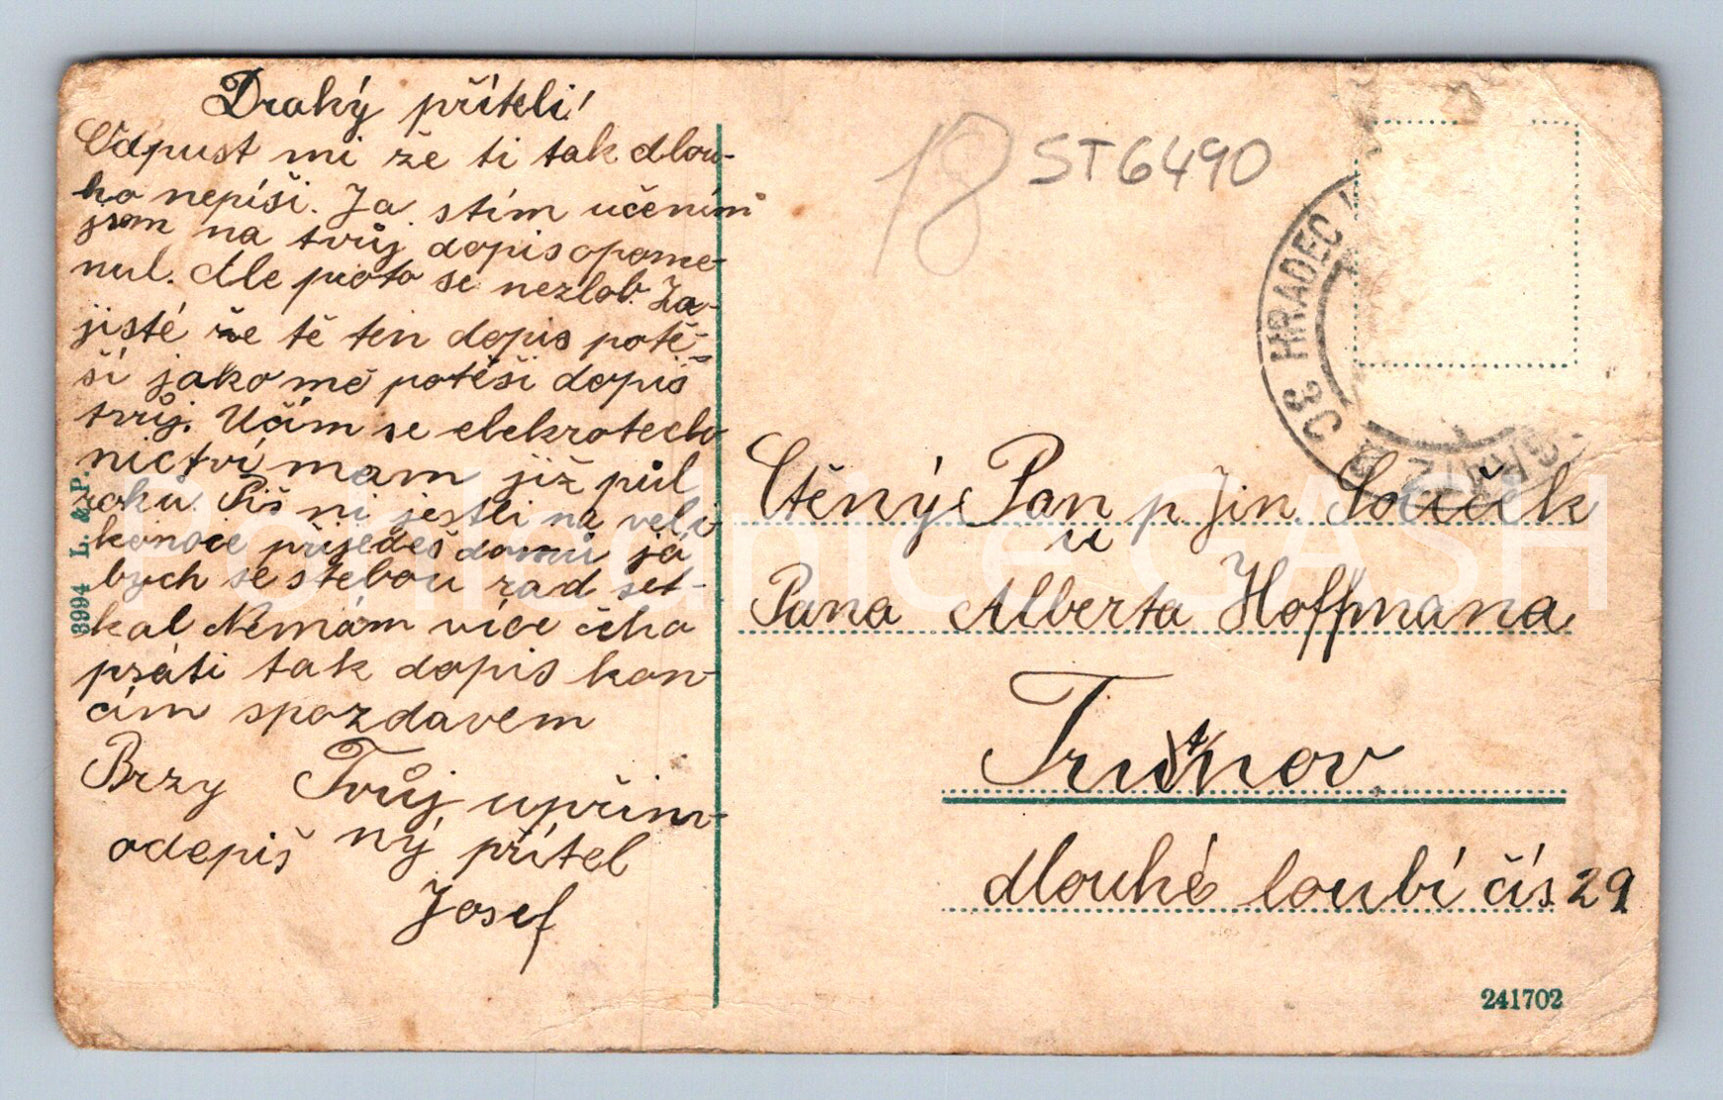 Drahý příteli!
Odpust mi že ti tak dlou-
ho nepíši. Ja stím učením
jsem na tvůj dopis opome-
nul. Ale proto se nezlob. Za-
jisté že tě ten dopis potě-
ší jako mě potěši dopis
tvůj. Učím se elekrotech
nictví mam již půl
roku. Piš mi jestli na veli
konoce přijedeš domů já
bych se stebou rad set-
kal Nemám více čeho
psáti tak dopis kon-
čím spozdavem
Brzy Tvůj upřim-
odepiš ný přítel
Josef
3994 L. & P.
18 ST6490
HRADEC
Ctěný Pan p. Jin. Souček
u
Pana Alberta Hoffmana
Trutnov
dlouhé loubí čís 29
241702
Pohlednice GASH